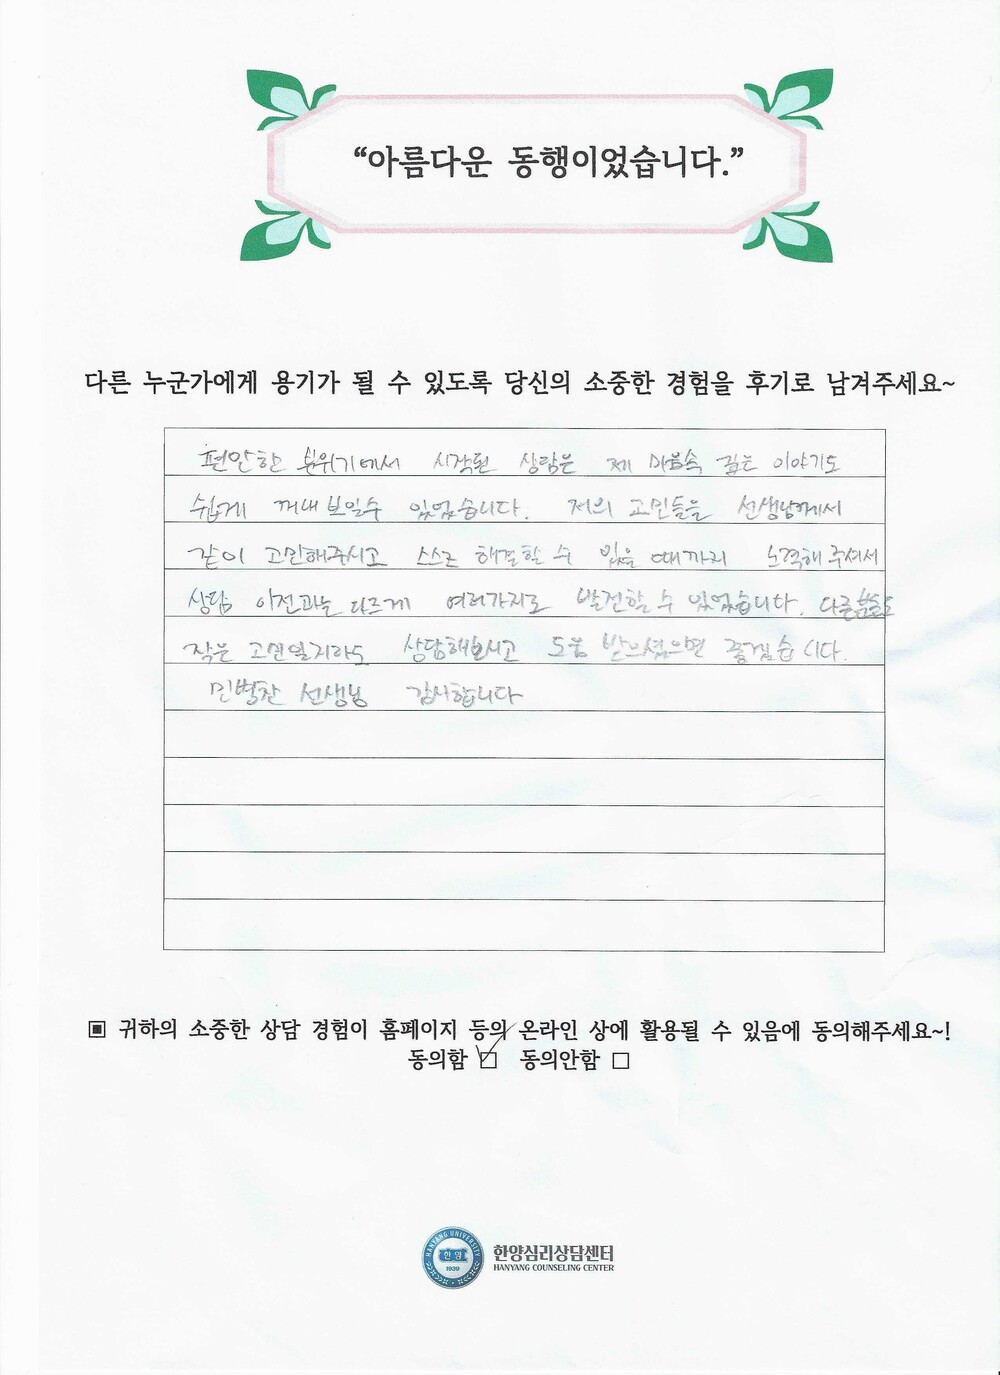 “아름다운 동행이었습니다.”
다른 누군가에게 용기가 될 수 있도록 당신의 소중한 경험을 후기로 남겨주세요~
편안한 분위기에서 시작된 상담은 제 마음속 깊은 이야기도
쉽게 꺼내 보일수 있었습니다. 저의 고민들을 선생님께서
같이 고민해주시고 스스로 해결할 수 있을 때까지 노력해 주셔서
상담 이전과는 다르게 여러가지로 발전할 수 있었습니다. 다른분들도
작은 고민일지라도 상담해보시고 도움 받으셨으면 좋겠습니다.
민병찬 선생님 감사합니다
▣ 귀하의 소중한 상담 경험이 홈페이지 등의 온라인 상에 활용될 수 있음에 동의해주세요~!
동의함 ☑ 동의안함 □
HANYANG UNIVERSITY
한양
1939
한양심리상담센터
HANYANG COUNSELING CENTER